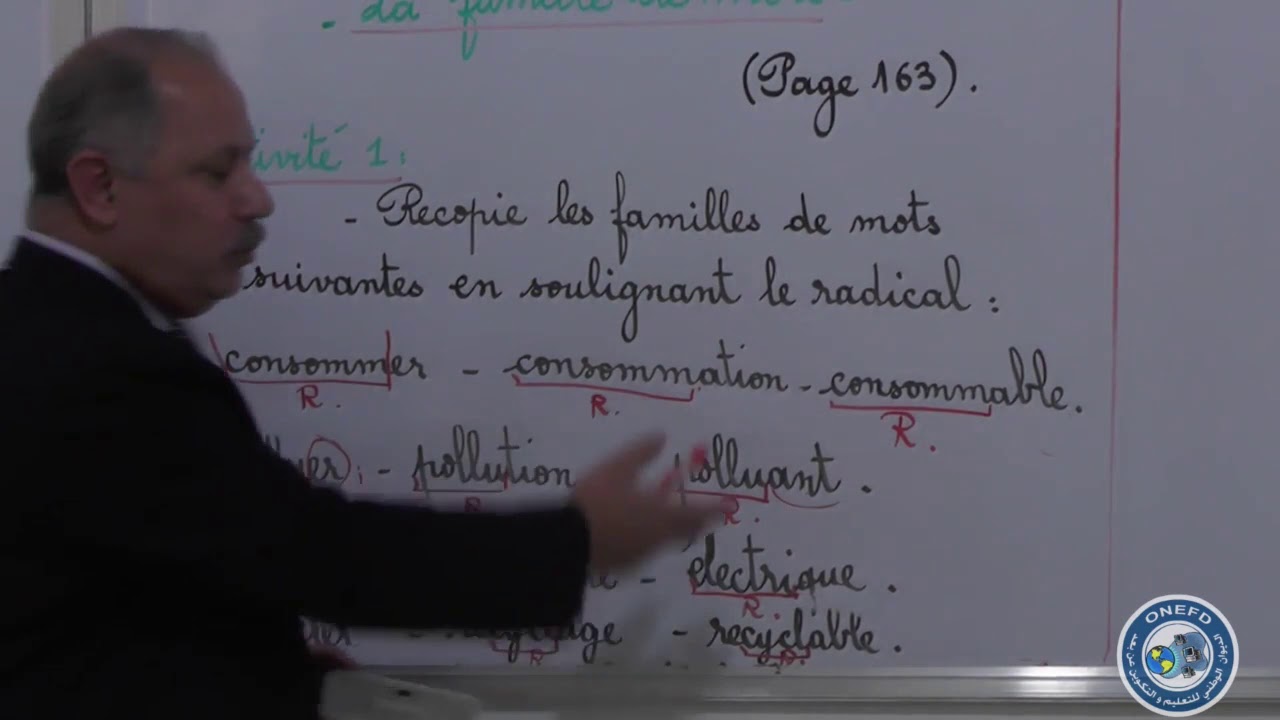 - La famille de mots
(Page 163).
ivité 1:
- Recopie les familles de mots
suivantes en soulignant le radical :
consommer - consommation - consommable.
R. R. R.
er - pollution polluant .
R R.
- électrique .
R.
- recyclable .
R R.
ONEFD
الديوان الوطني للتعليم و التكوين عن بعد